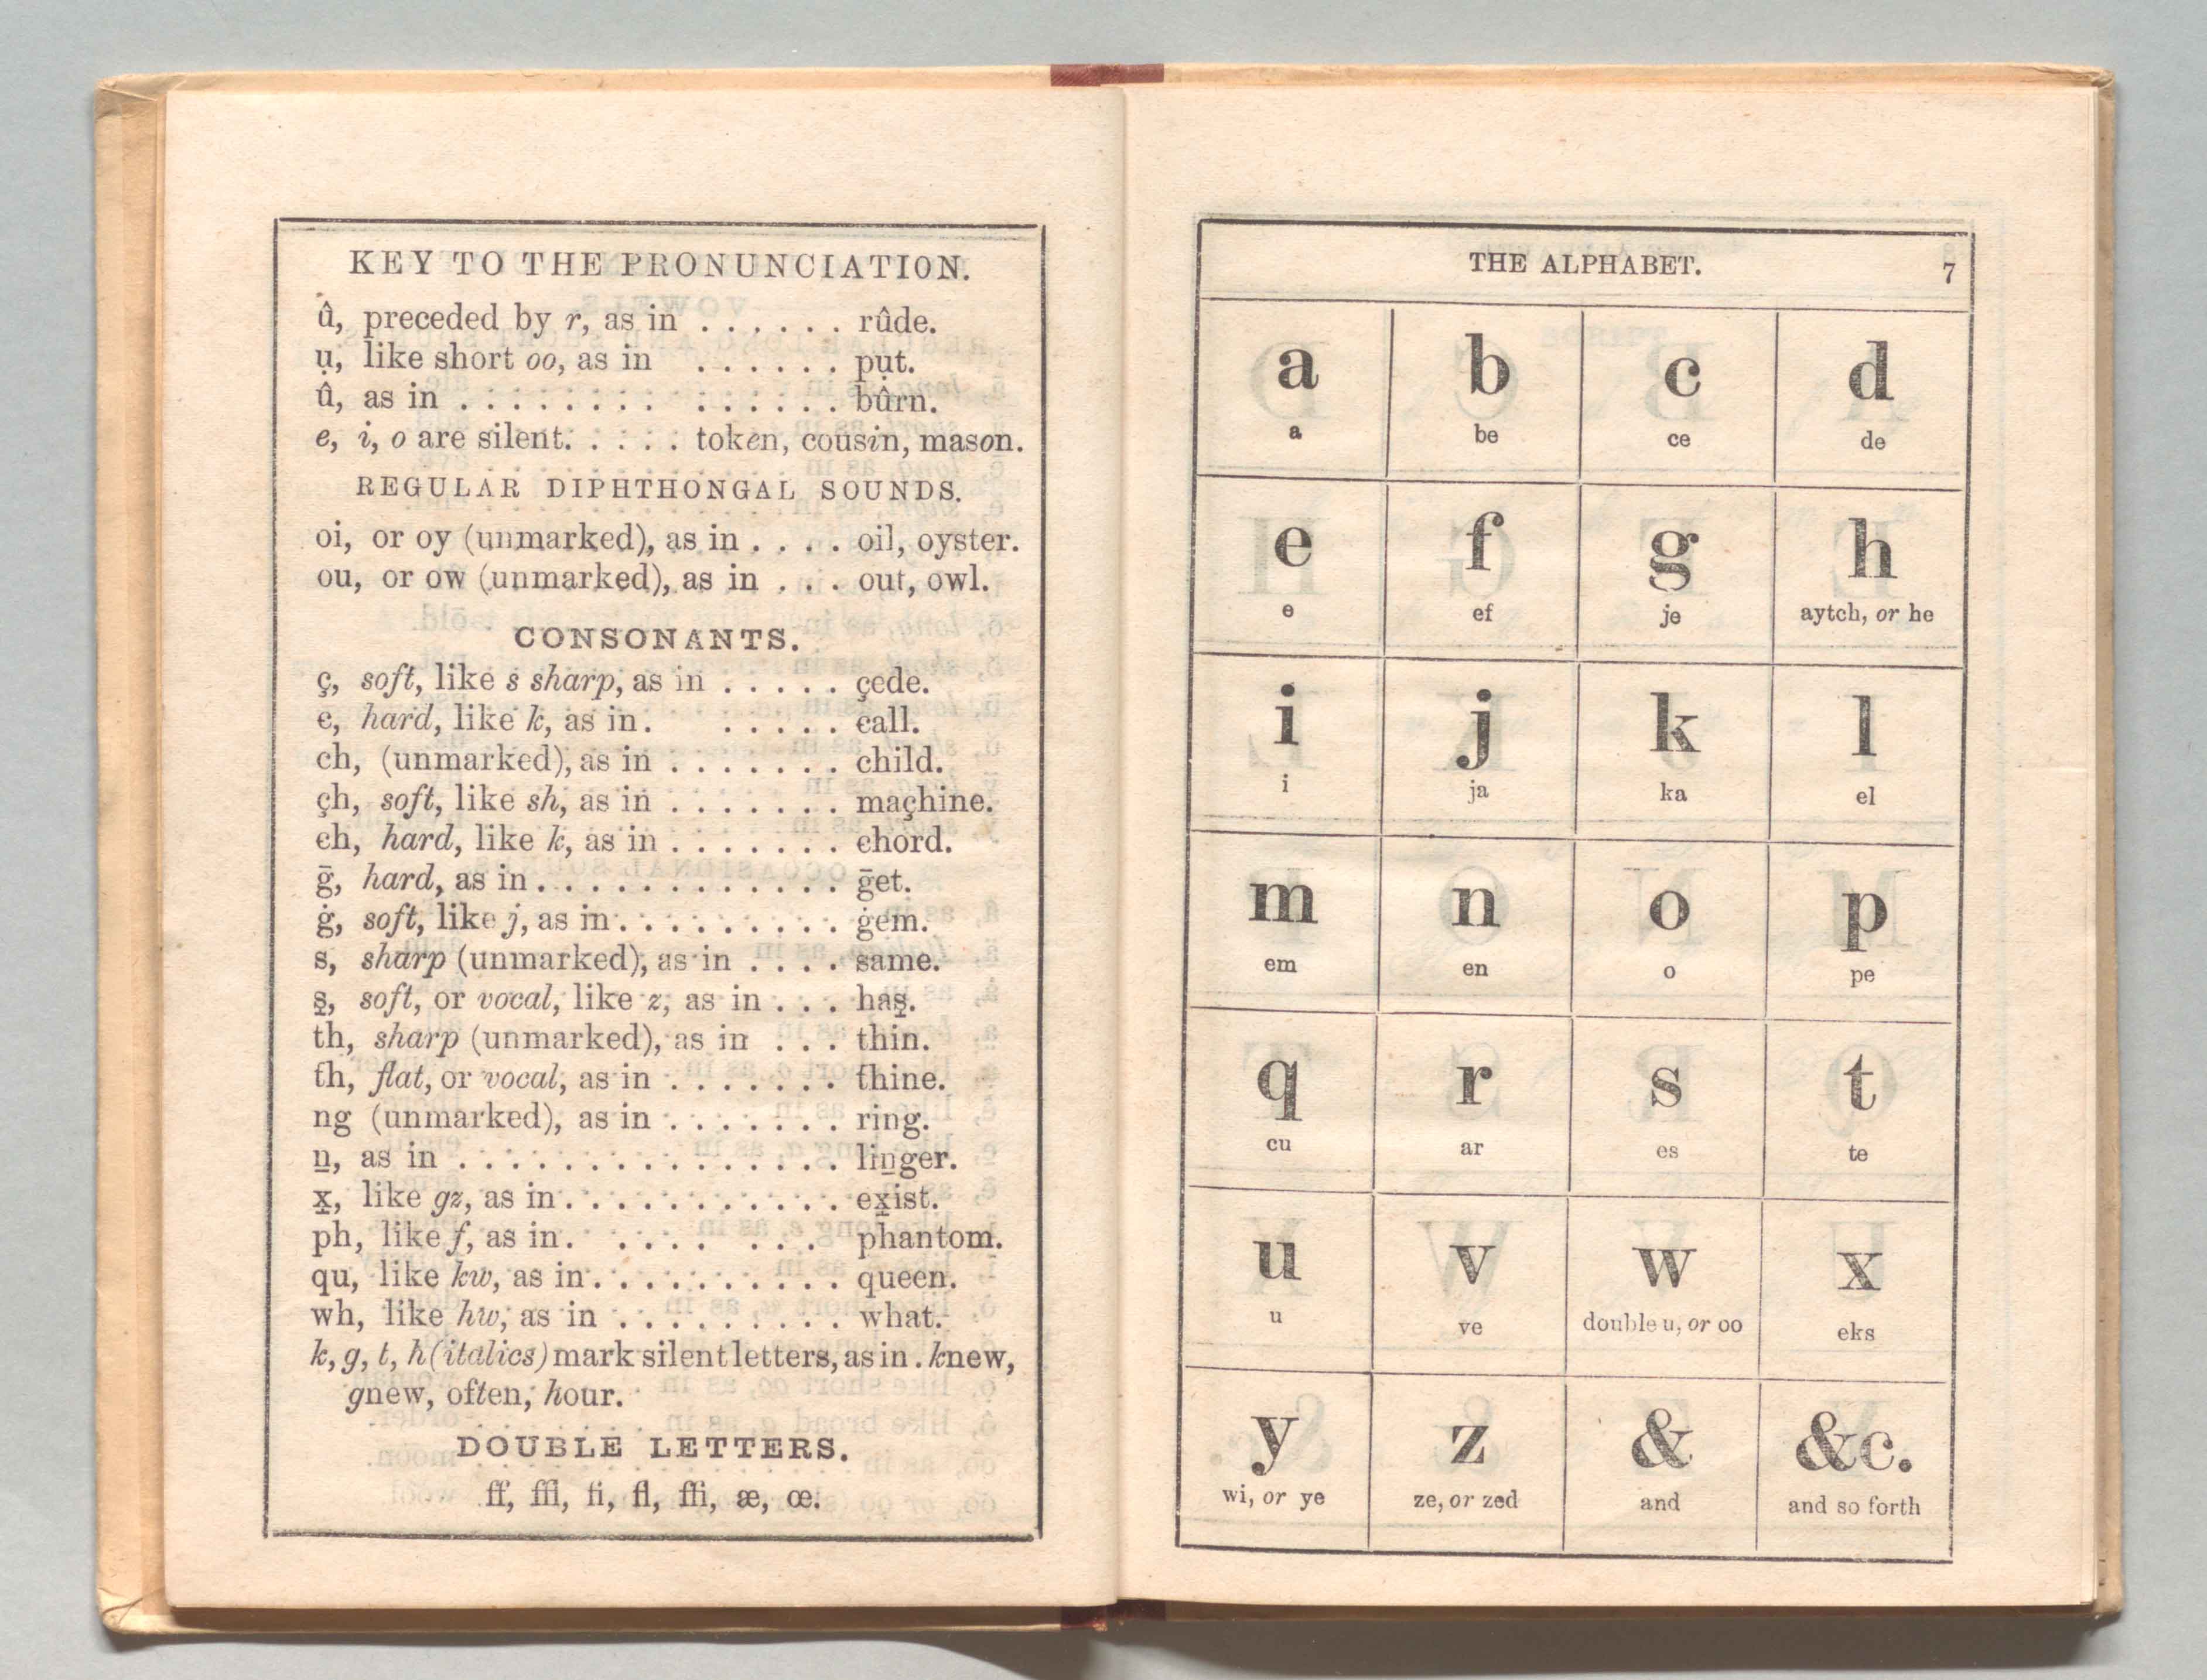 KEY TO THE PRONUNCIATION.
û, preceded by r, as in . . . . . . rûde.
ụ, like short oo, as in . . . . . . pụt.
û, as in . . . . . . . . . . . . . . bûrn.
e, i, o are silent. . . . . token, cousin, mason.
REGULAR DIPHTHONGAL SOUNDS.
oi, or oy (unmarked), as in . . . . oil, oyster.
ou, or ow (unmarked), as in . . . out, owl.
CONSONANTS.
ç, soft, like s sharp, as in . . . . . çede.
e, hard, like k, as in. . . . . . eall.
ch, (unmarked), as in . . . . . . . child.
çh, soft, like sh, as in . . . . . . . maçhine.
eh, hard, like k, as in . . . . . . . ehord.
ḡ, hard, as in . . . . . . . . . . . . ḡet.
ġ, soft, like j, as in . . . . . . . . . ġem.
s, sharp (unmarked), as in . . . . same.
s̱, soft, or vocal, like z, as in . . . has̱.
th, sharp (unmarked), as in . . . thin.
th, flat, or vocal, as in . . . . . . . thine.
ng (unmarked), as in . . . . . . . ring.
ṉ, as in . . . . . . . . . . . . . . . liṉger.
x̱, like gz, as in . . . . . . . . . . . ex̱ist.
ph, like f, as in. . . . . . . . phantom.
qu, like kw, as in . . . . . . . . . . queen.
wh, like hw, as in . . . . . . . . . what.
k, g, t, h (italics) mark silent letters, as in . knew,
gnew, often, hour.
DOUBLE LETTERS.
ff, ffi, fi, fl, ffi, æ, œ.
THE ALPHABET. 7
a b c d
a be ce de
e f g h
e ef je aytch, or he
i j k l
i ja ka el
m n o p
em en o pe
q r s t
cu ar es te
u v w x
u ve double u, or oo eks
y z & &c.
wi, or ye ze, or zed and and so forth